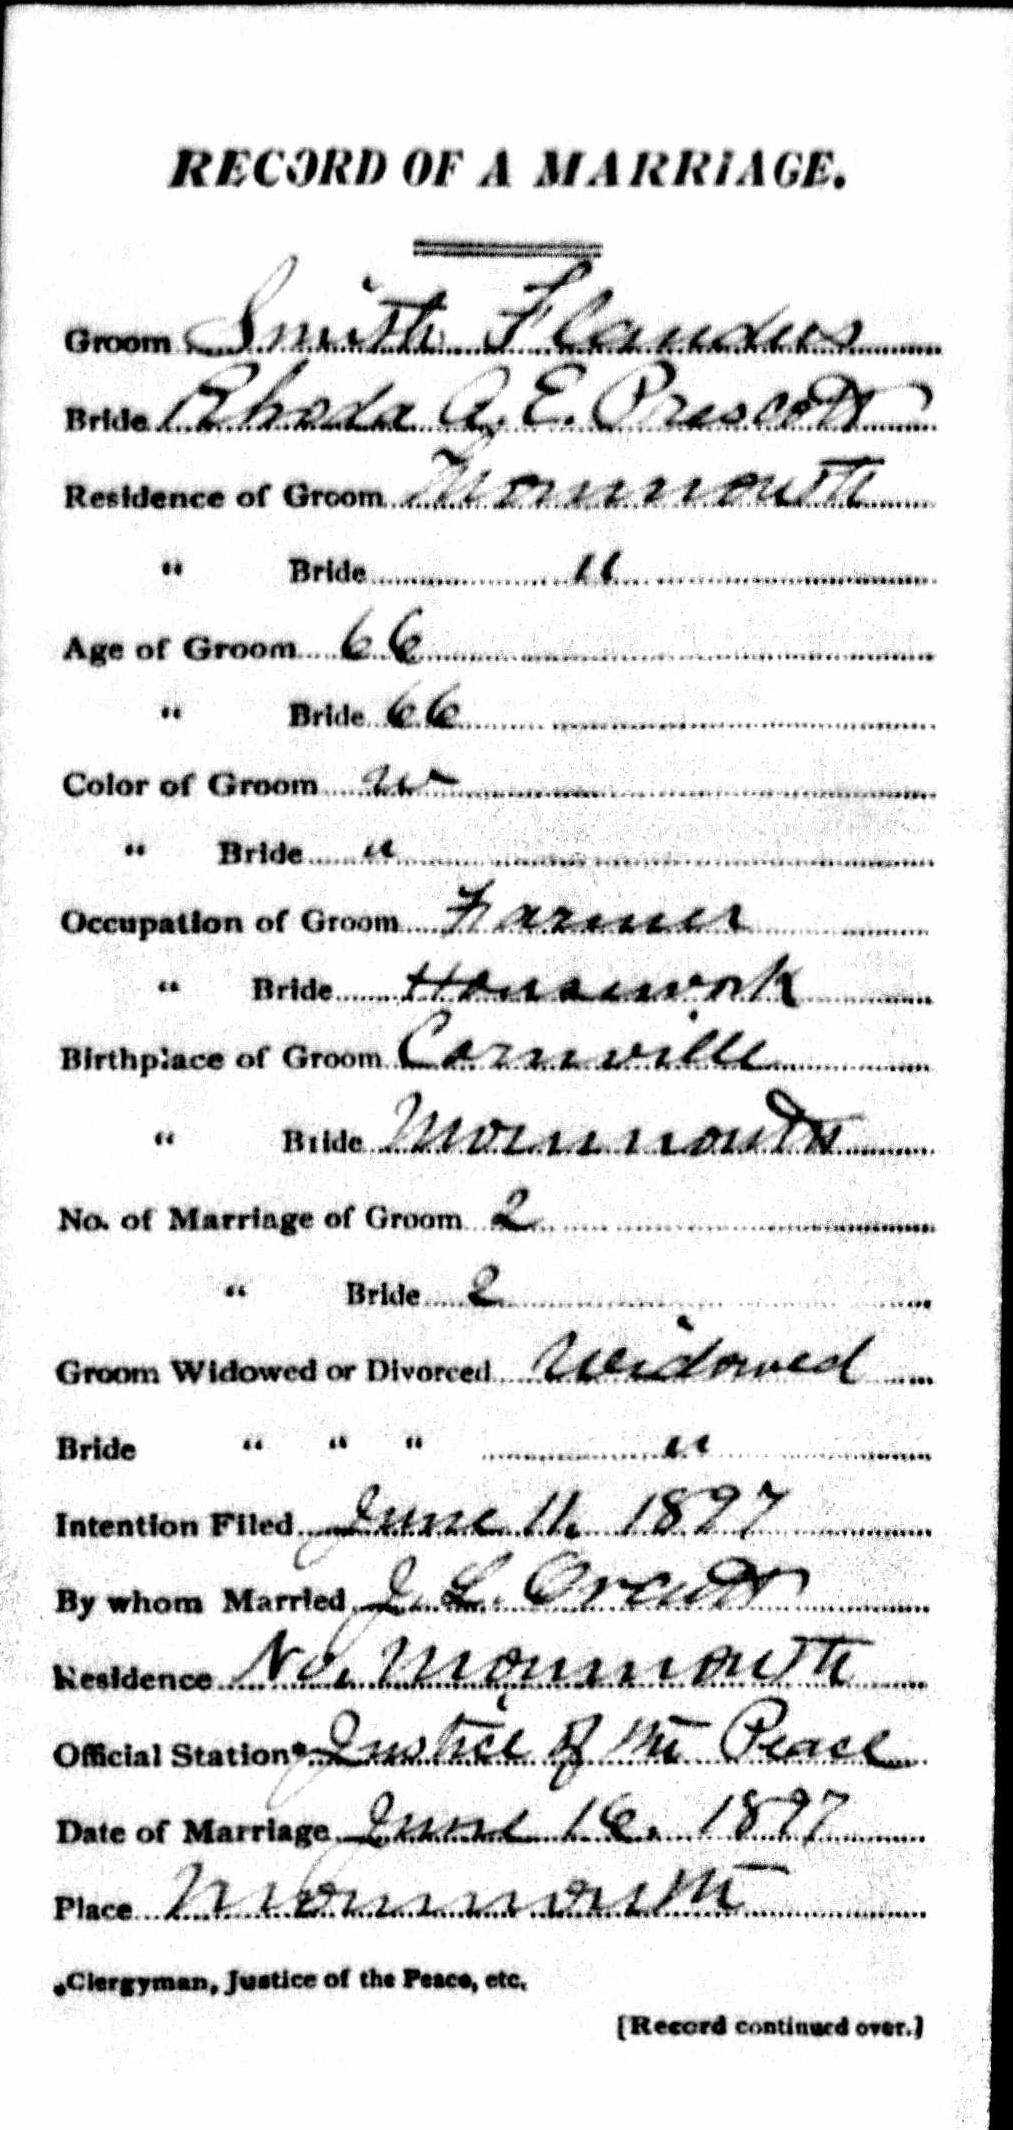 RECORD OF A MARRIAGE.
Groom Smith Flanders
Bride Rhoda A. E. Prescott
Residence of Groom Monmouth
“ Bride "
Age of Groom 66
“ Bride 66
Color of Groom W
“ Bride "
Occupation of Groom Farmer
“ Bride Housework
Birthplace of Groom Cornville
“ Bride Monmouth
No. of Marriage of Groom 2
“ Bride 2
Groom Widowed or Divorced Widowed
Bride “ “ “ "
Intention Filed June 11. 1897
By whom Married J. L. Orcutt
Residence No. Monmouth
Official Station* Justice of the Peace
Date of Marriage June 16. 1897
Place Monmouth
*Clergyman, Justice of the Peace, etc.
[Record continued over.]